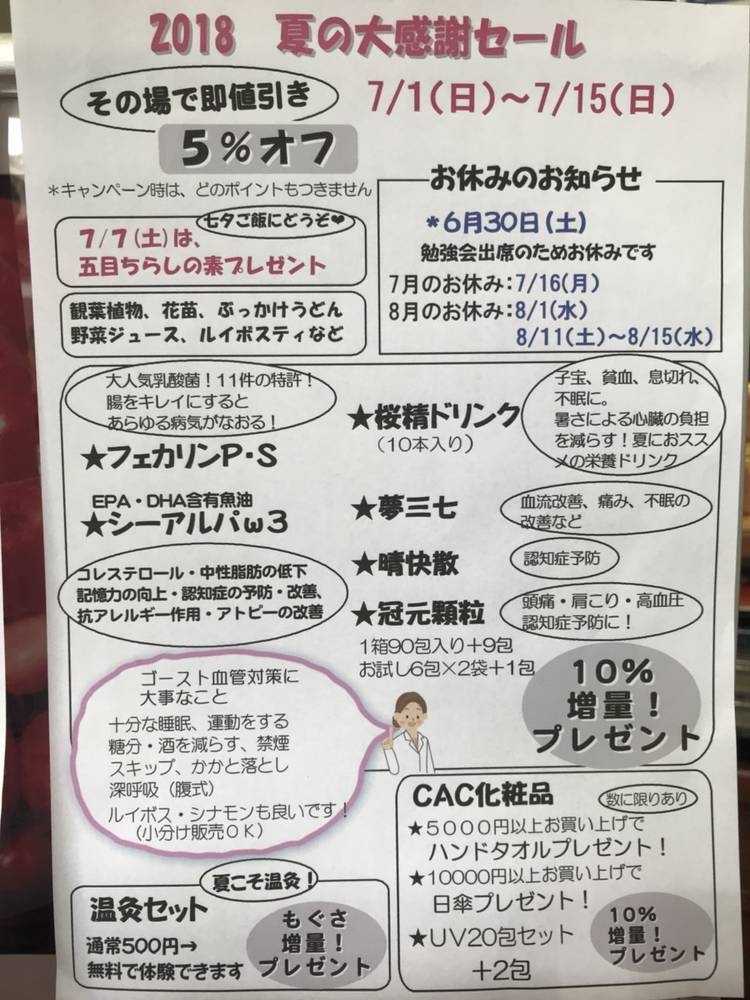 2018 夏の大感謝セール
その場で即値引き
7/1(日)～7/15(日)
5%オフ
*キャンペーン時は、どのポイントもつきません
七夕ご飯にどうぞ❤
7/7(土)は、
五目ちらしの素プレゼント
観葉植物、花苗、ぶっかけうどん
野菜ジュース、ルイボスティなど
お休みのお知らせ
*6月30日(土)
勉強会出席のためお休みです
7月のお休み:7/16(月)
8月のお休み:8/1(水)
8/11(土)～8/15(水)
大人気乳酸菌！11件の特許！
腸をキレイにすると
あらゆる病気がなおる！
★フェカリンP・S
EPA・DHA含有魚油
★シーアルパω3
コレステロール・中性脂肪の低下
記憶力の向上・認知症の予防・改善、
抗アレルギー作用・アトピーの改善
★桜精ドリンク
(10本入り)
子宝、貧血、息切れ、
不眠に。
暑さによる心臓の負担
を減らす！夏におスス
メの栄養ドリンク
★夢三七
血流改善、痛み、不眠の
改善など
★晴快散
認知症予防
★冠元顆粒
頭痛・肩こり・高血圧
認知症予防に！
1箱90包入り＋9包
お試し6包×2袋＋1包
10%
増量！
プレゼント
ゴースト血管対策に
大事なこと
十分な睡眠、運動をする
糖分・酒を減らす、禁煙
スキップ、かかと落とし
深呼吸（腹式）
ルイボス・シナモンも良いです！
（小分け販売ＯＫ）
CAC化粧品
数に限りあり
★５０００円以上お買い上げで
ハンドタオルプレゼント！
★10000円以上お買い上げで
日傘プレゼント！
★UV20包セット
＋2包
10%
増量！
プレゼント
夏こそ温灸！
温灸セット
通常500円→
無料で体験できます
もぐさ
増量！
プレゼント